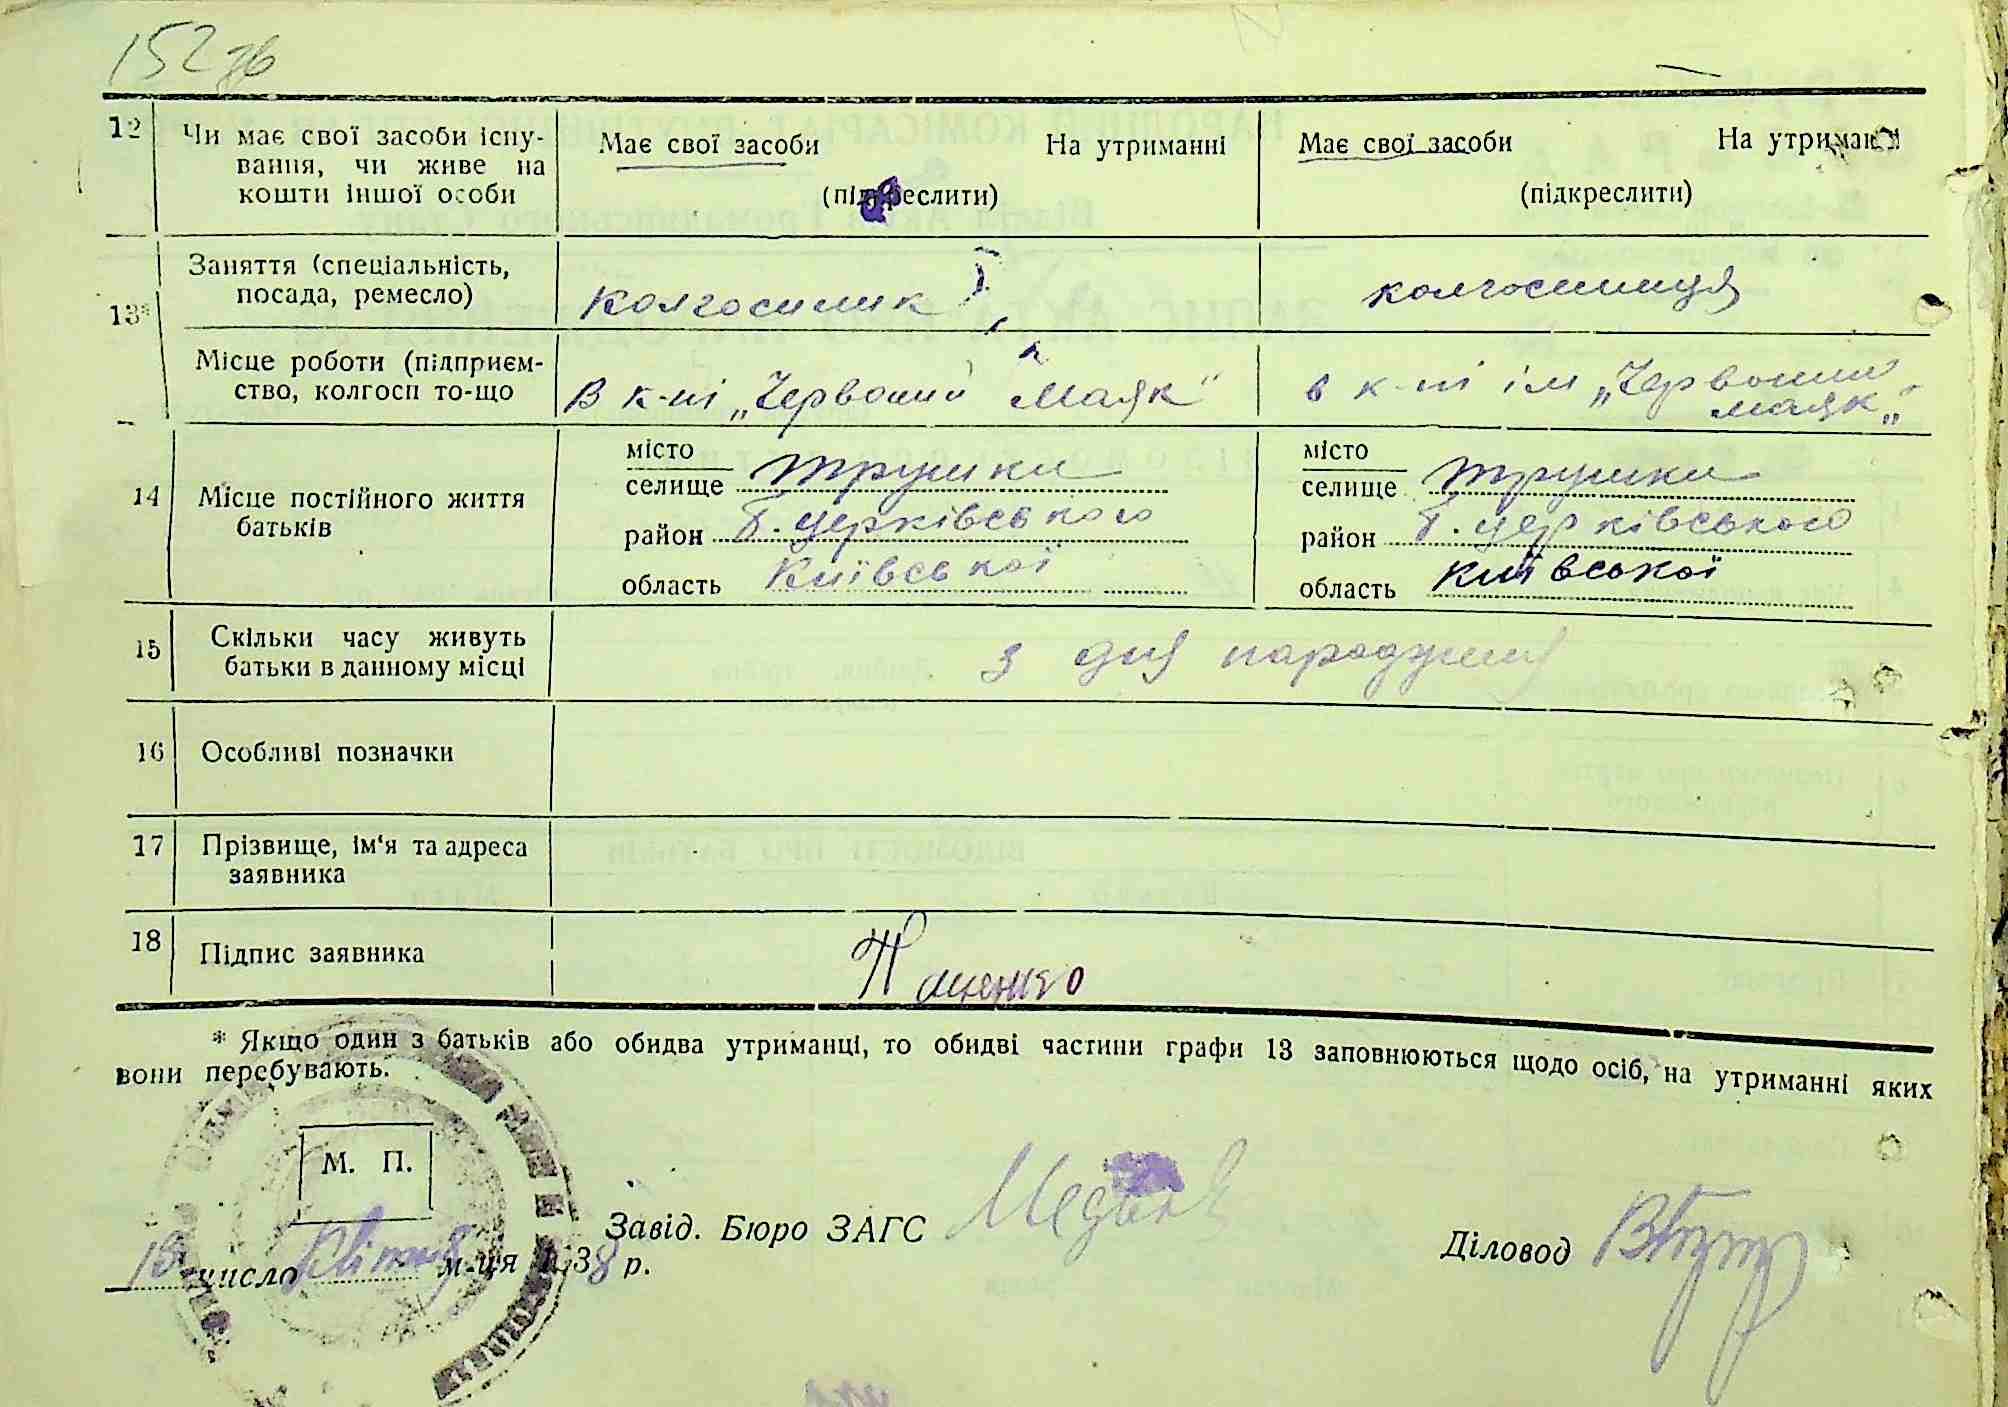 152 зв
12 Чи має свої засоби існу-
вання, чи живе на
кошти іншої особи
Має свої засоби На утриманні
(підкреслити)
Має свої засоби На утриманні
(підкреслити)
13* Заняття (спеціальність,
посада, ремесло)
колгоспник
колгоспниця
Місце роботи (підприєм-
ство, колгосп то-що
В к-пі „Червоний Маяк"
в к-пі ім „Червоний
маяк„
14 Місце постійного життя
батьків
місто
селище Трушки
район Б. Церківського
область Київської
місто
селище Трушки
район Б. Церківського
область Київської
15 Скільки часу живуть
батьки в данному місці
з дня народження
16 Особливі позначки
17 Прізвище, ім'я та адреса
заявника
18 Підпис заявника
* Якщо один з батьків або обидва утриманці, то обидві частини графи 13 заповнюються щодо осіб, на утриманні яких
вони перебувають.
М. П.
Завід. Бюро ЗАГС
Діловод
число квітня м-ця 1938 р.